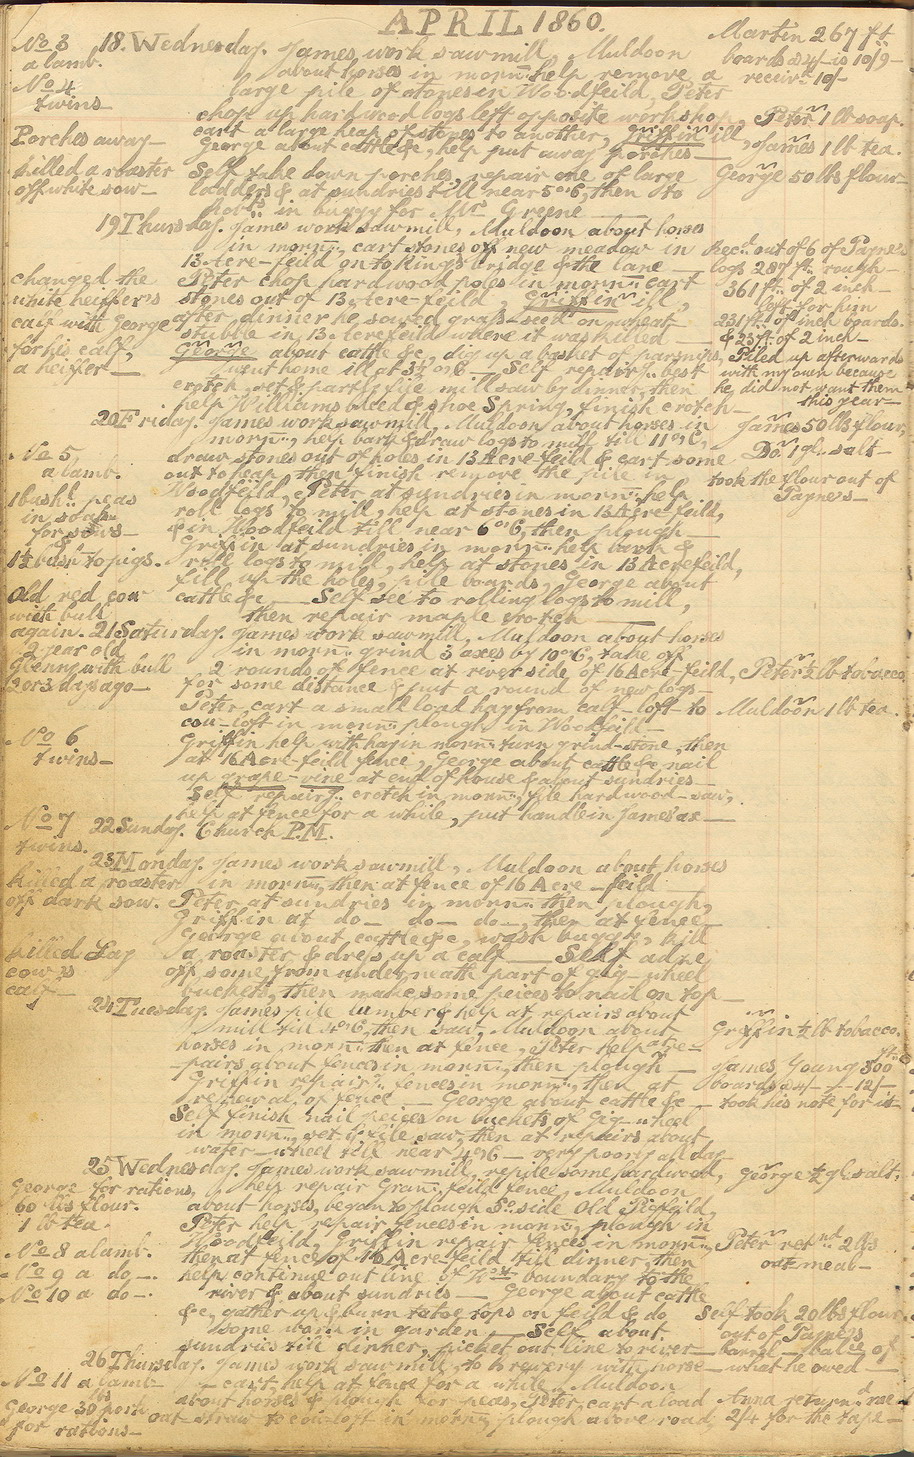 APRIL 1860.
No 3
a lamb.
No 4
twins—
Porches away—
killed a roaster
off white sow—
18. Wednesday. James work sawmill, Muldoon
about horses in morng. help remove a
large pile of stones in Woodfeild, Peter
chop up hardwood logs left opposite workshop,
cart a large heap of stones to another, Griffin ill,
George about cattle &c, help put away porches—
Self take down porches, repair one of large
ladders & at sundries till near 5 o'C, then to
in buggy for Mr Greene
Martin 267 ft
boards a 4/- is 10/9—
receivd. 10/-
Peter 1 lb soap.
James 1 lb tea.
George 50 lbs flour—
19 Thursday. James work sawmill, Muldoon about horses
in morng., cart stones off new meadow in
13 Acre-feild on to King's bridge & the lane—
Peter chop hardwood poles in morng. cart
stones out of 13 Acre-feild, Griffin ill,
after dinner he sowed grass-seed on wheat
stubble in 13 Acrefeild where it was killed—
George about cattle &c, dig up a basket of parsnips,
went home ill at 3½ o'C— Self repairg. best
crotch, set & partly file mill saw by dinner, then
help Williams bleed & shoe Spring, finish crotch—
changed the
white heiffer's
calf with George
for his calf,
a heifer—
Recd. out of 6 of Payne's
logs 287 ft. rough—
361 ft. of 2 inch—
left for him
231 ft. of inch boards.
& 25 ft of 2 inch—
Piled up afterwards
with my own because
he did not want them
this year—
20 Friday. James work sawmill, Muldoon about horses in
morng., help bark & draw logs to mill till 11 o'C,
draw stones out of holes in 13 Acre-feild & cart some
out to heap, then finish remove the pile in
Woodfeild, Peter at sundries in morng. help
roll logs to mill, help at stones in 13 Acre-feild,
& in Woodfeild till near 6 o'C, then plough—
Griffin at sundries in morng. help bark &
roll logs to mill, help at stones in 13 Acrefeild,
fill up the holes, pile boards, George about
cattle &c— Self see to rolling logs to mill,
then repair maple crotch
No 5
a lamb.
1 bushl. peas
in
for sows—
1½ bushl. to pigs.
Old red cow
with bull
again.
2 year old
Glenny with bull
2 or 3 days ago—
James 50 lbs flour,
Do. 1 qt. salt—
took the flour out of
Payne's—
21 Saturday. James work sawmill, Muldoon about horses
in morng. grind 3 axes by 10 o'C, take off
2 rounds of fence at river side of 16 Acre-feild,
for some distance & put a round of new logs—
Peter cart a small load hay from calf-loft to
cow-loft in morng. plough in Woodfeild—
Griffin help with hay in morng. turn grind-stone, then
at 16 Acre-feild fence, George about cattle &c, nail
up grape-vine at end of house & about sundries—
Self repairg. crotch in morng., file hardwood-saw,
help at fence for a while, put handle in James' ax—
No 6
twins—
Peter ½ lb tobacco,
Muldoon 1 lb tea.
No 7
twins.
22 Sunday. Church P.M.
23 Monday. James work sawmill, Muldoon about horses
in morng., then at fence of 16 Acre-feild
Peter at sundries in morng. then plough,
Griffin at do— do— do—, then at fence—
George about cattle &c, wash buggy, kill
a roaster & dress up a calf— Self
off some from underneath part of gig-wheel
buckets, then make some peices to nail on top—
killed a roaster
off dark sow.
killed Lay
cow's
calf—
24 Tuesday. James pile lumber & help at repairs about
mill till 4 o'C, then saw, Muldoon about
horses in morng. then at fence, Peter help at re=
-pairs about fences in morng., then plough—
Griffin repairg. fences in morng., then at
removal of fence— George about cattle &c—
Self finish nail peices on buckets of Gig-wheel
in morng., set & file saw, then at repairs about
water-wheel till near 4 o'C— very poorly all day
Griffin ½ lb tobacco.
James Young 300 ft.
boards a 4/- — 12/-
took his note for it—
25 Wednesday. James work sawmill, repile some hardwood,
help repair Grany. feild fence, Muldoon
about horses, began to plough So. side Old feild,
Peter help repair fences in morng., plough in
Woodfeild, Griffin repair fences in morng.,
then at fence of 16 Acre-feild till dinner, then
help continue out line of boundary to the
river & about sundries— George about cattle
&c, gather up & burn tatoe tops on feild & do
some work in garden— Self about
sundries till dinner, picket out line to river—
George for rations,
60 lbs flour.
1 lb tea.
No 8 a lamb.
No 9 a do—.
No 10 a do—.
George ½ qt. salt,
Peter retnd 2 lbs
oatmeal—
Self took 20 lbs flour
out of Payne's
barrel— balce of
what he owed—
26 Thursday. James work sawmill, to brewery with horse—
—cart, help at fence for a while, Muldoon
about horses & plough for peas, Peter cart a load
oat-straw to cow-loft in morng., plough above road,
No 11 a lamb—
George 30 lbs pork
for rations—
Anna returnd. me
2/4 for the tape—